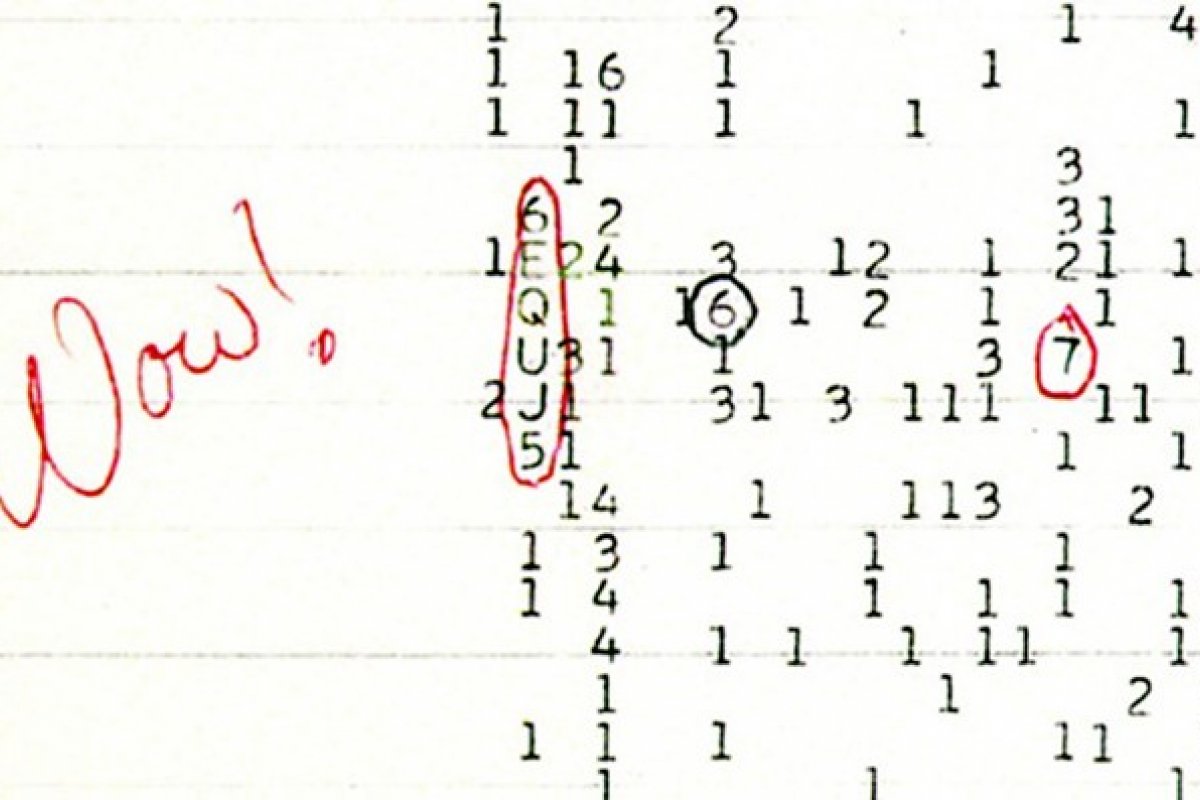 1 2 1 4
1 16 1 1
1 11 1 1 1
1 3
6 2 31
1E24 3 12 1 21 1
Q 1 16 1 2 1 1
U31 1 3 7 1
Wow!
2J1 31 3 111 11
51 1 1
14 1 113 2
1 3 1 1 1
1 4 1 1 1 1
4 1 1 1 11 1
1 1 2
1 1 1 11
1 1 1